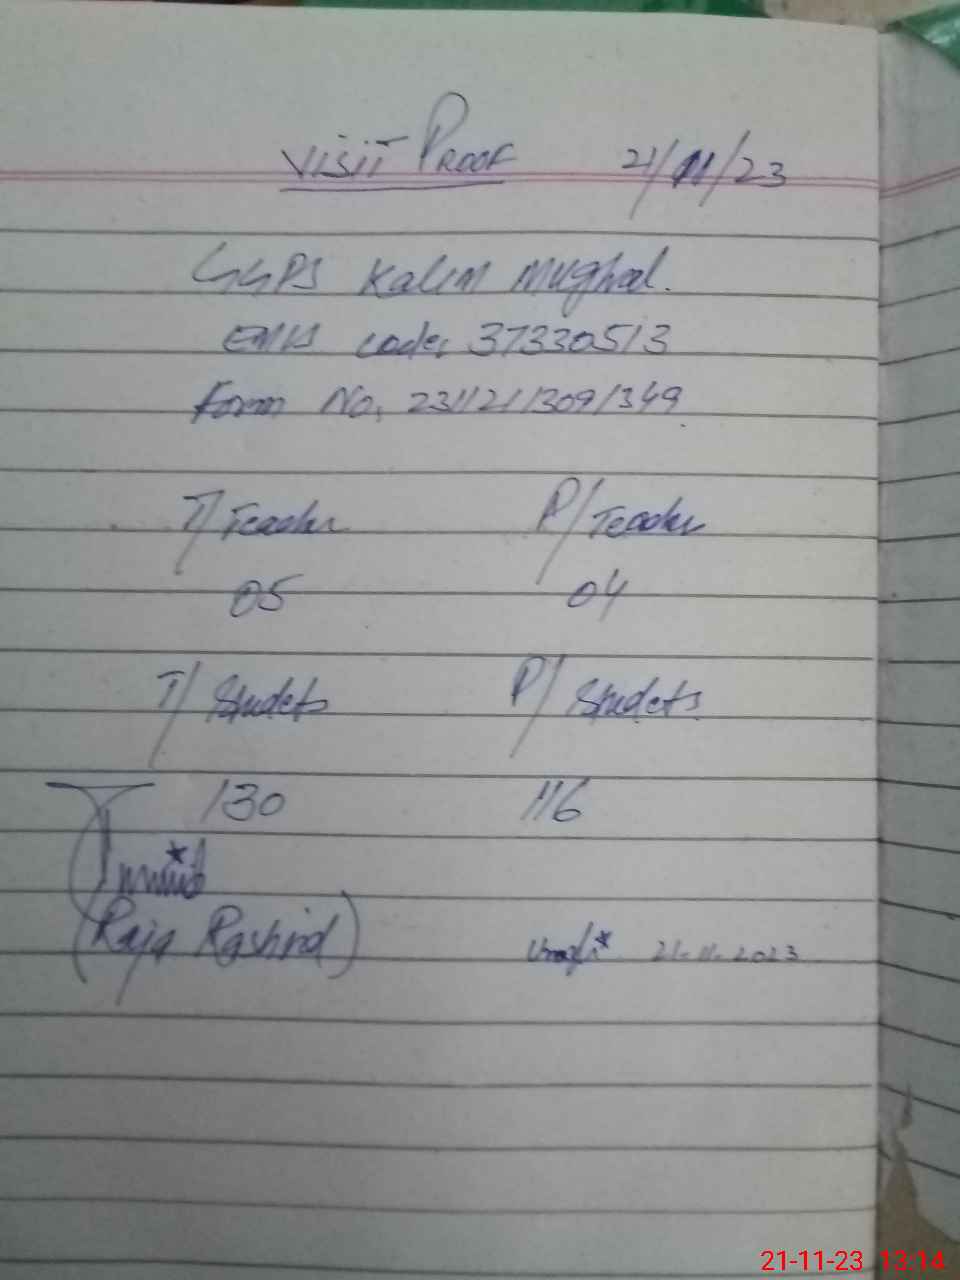 VISIT PROOF 21/11/23
GGPS Kalim Mughal.
EMIS code, 37330513
Form No, 23112113091349
T/Teacher P/Teacher
05 04
T/Studets P/Studets
130 116
(Raja Rashid)
21-11-2023
21-11-23 13:14